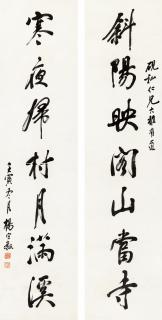 斜陽映閣山當寺
仁兄大雅
寒夜歸村月滿溪
壬寅 月 楊守敬